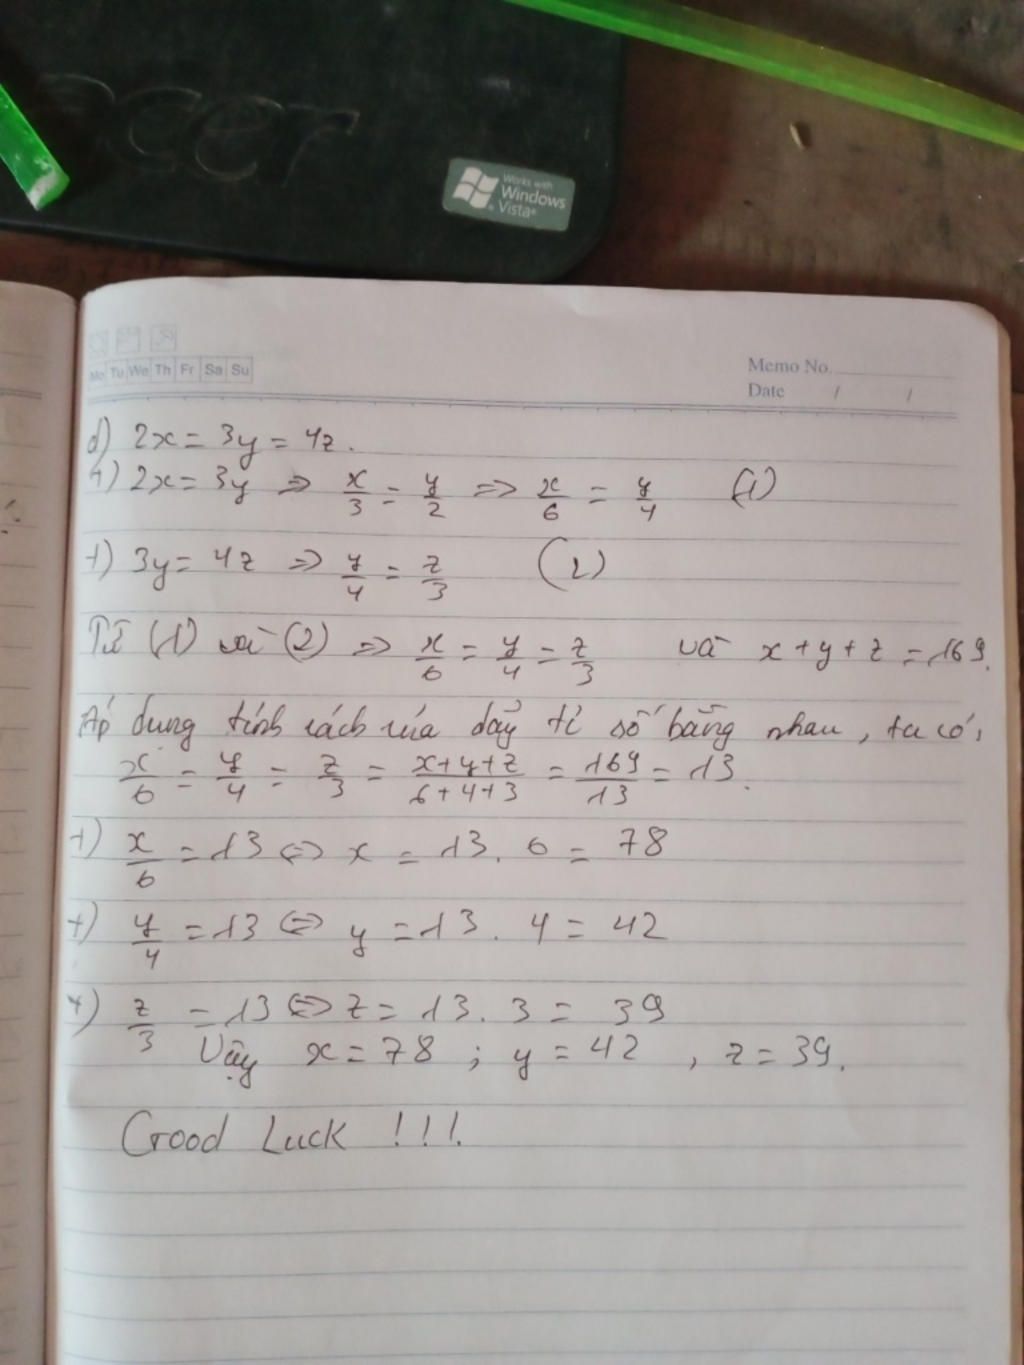 acer
Works with
Windows
Vista®
Mo Tu We Th Fr Sa Su
Memo No.
Date / /
d) 2x = 3y = 4z.
+) 2x = 3y => x/3 = y/2 => x/6 = y/4 (1)
+) 3y = 4z => y/4 = z/3 (2)
Từ (1) và (2) => x/6 = y/4 = z/3 và x+y+z = 169.
Áp dung tính cách của dãy tỉ số bằng nhau, ta có,
x/6 = y/4 = z/3 = x+y+z/6+4+3 = 169/13 = 13.
+) x/6 = 13 <=> x = 13. 6 = 78
+) y/4 = 13 <=> y = 13. 4 = 42
+) z/3 = 13 <=> z = 13. 3 = 39
Vậy x = 78 ; y = 42 , z = 39.
Good Luck !!!.